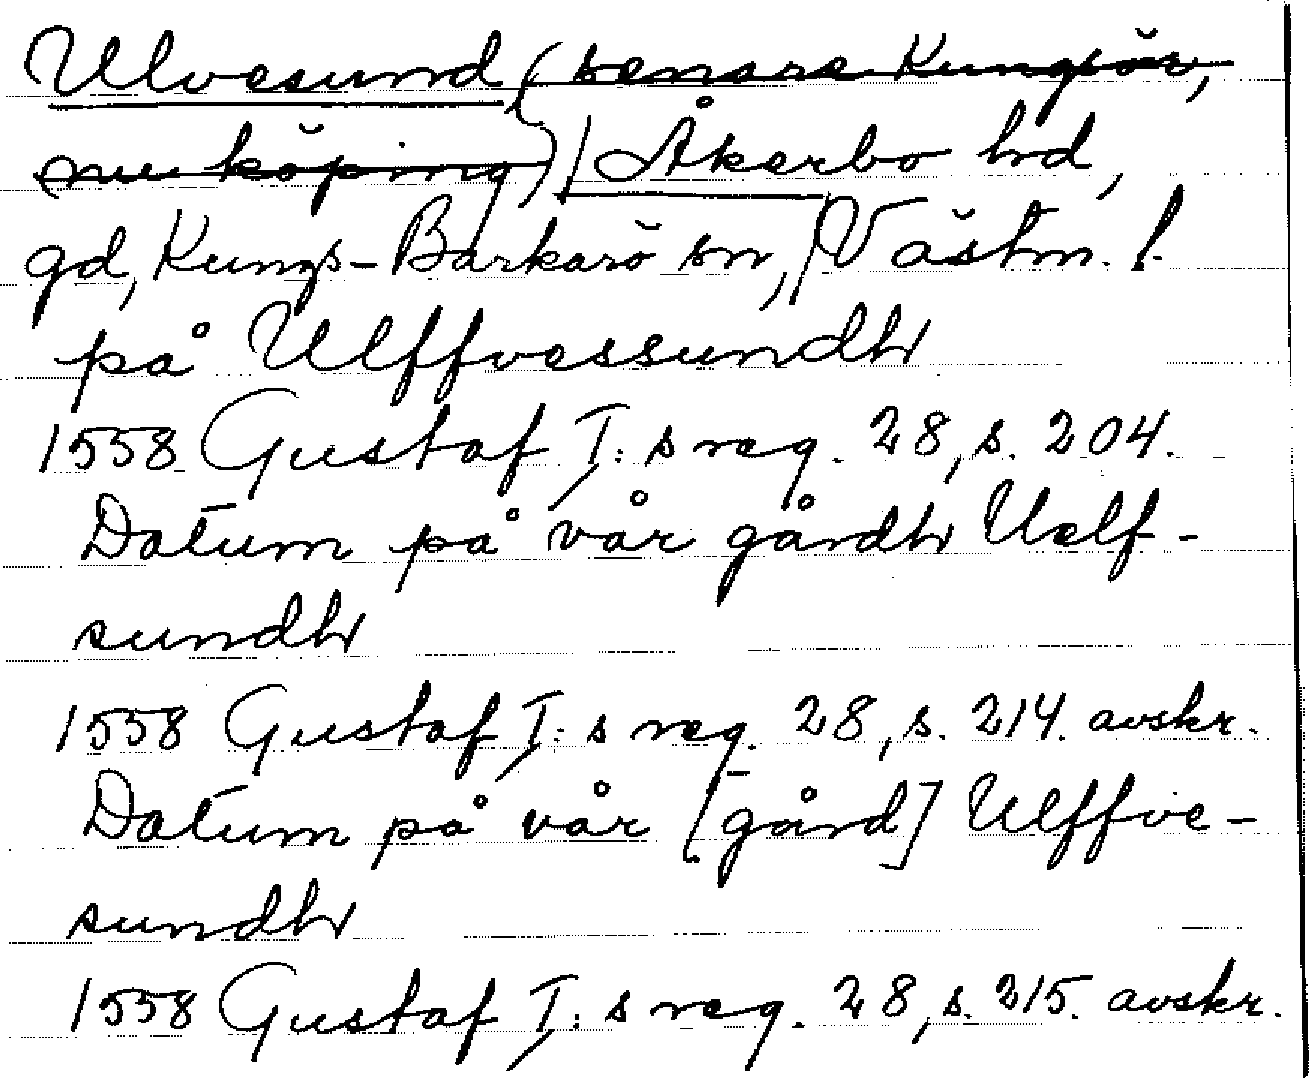 Ulvesund (senare Kungsör,
nu köping) / Åkerbo hd,
gd, Kungs-Barkarö sn, / Västm. l.
på Ulffvessundh
1558 Gustaf I:s reg. 28, s. 204.
Datum på vår gårdh Uelf-
sundh
1558 Gustaf I:s reg. 28, s. 214. avskr.
Datum på vår [gård] Ulffve-
sundh
1558 Gustaf I:s reg. 28, s. 215. avskr.